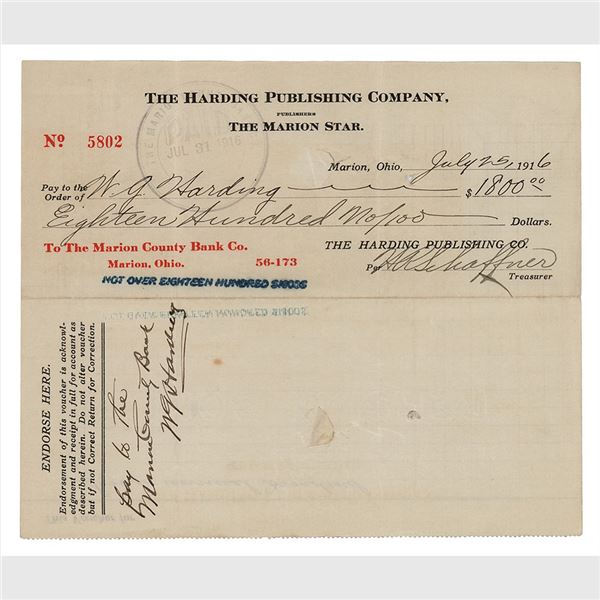 THE HARDING PUBLISHING COMPANY,
PUBLISHERS
THE MARION STAR.
No 5802
THE MARION
JUL 31 1916
Marion, Ohio, July 25, 1916
Pay to the Order of W. G. Harding $1800.00
Eighteen Hundred No/100 Dollars.
To The Marion County Bank Co.
Marion, Ohio. 56-173
THE HARDING PUBLISHING CO.
Per H A Schaffner
Treasurer
NOT OVER EIGHTEEN HUNDRED $1800$
ENDORSE HERE.
Endorsement of this voucher is acknowl-
edgment and receipt in full for account as
described herein. Do not alter voucher
but if not Correct Return for Correction.
Pay to the
Marion County Bank
W G Harding
This Voucher for